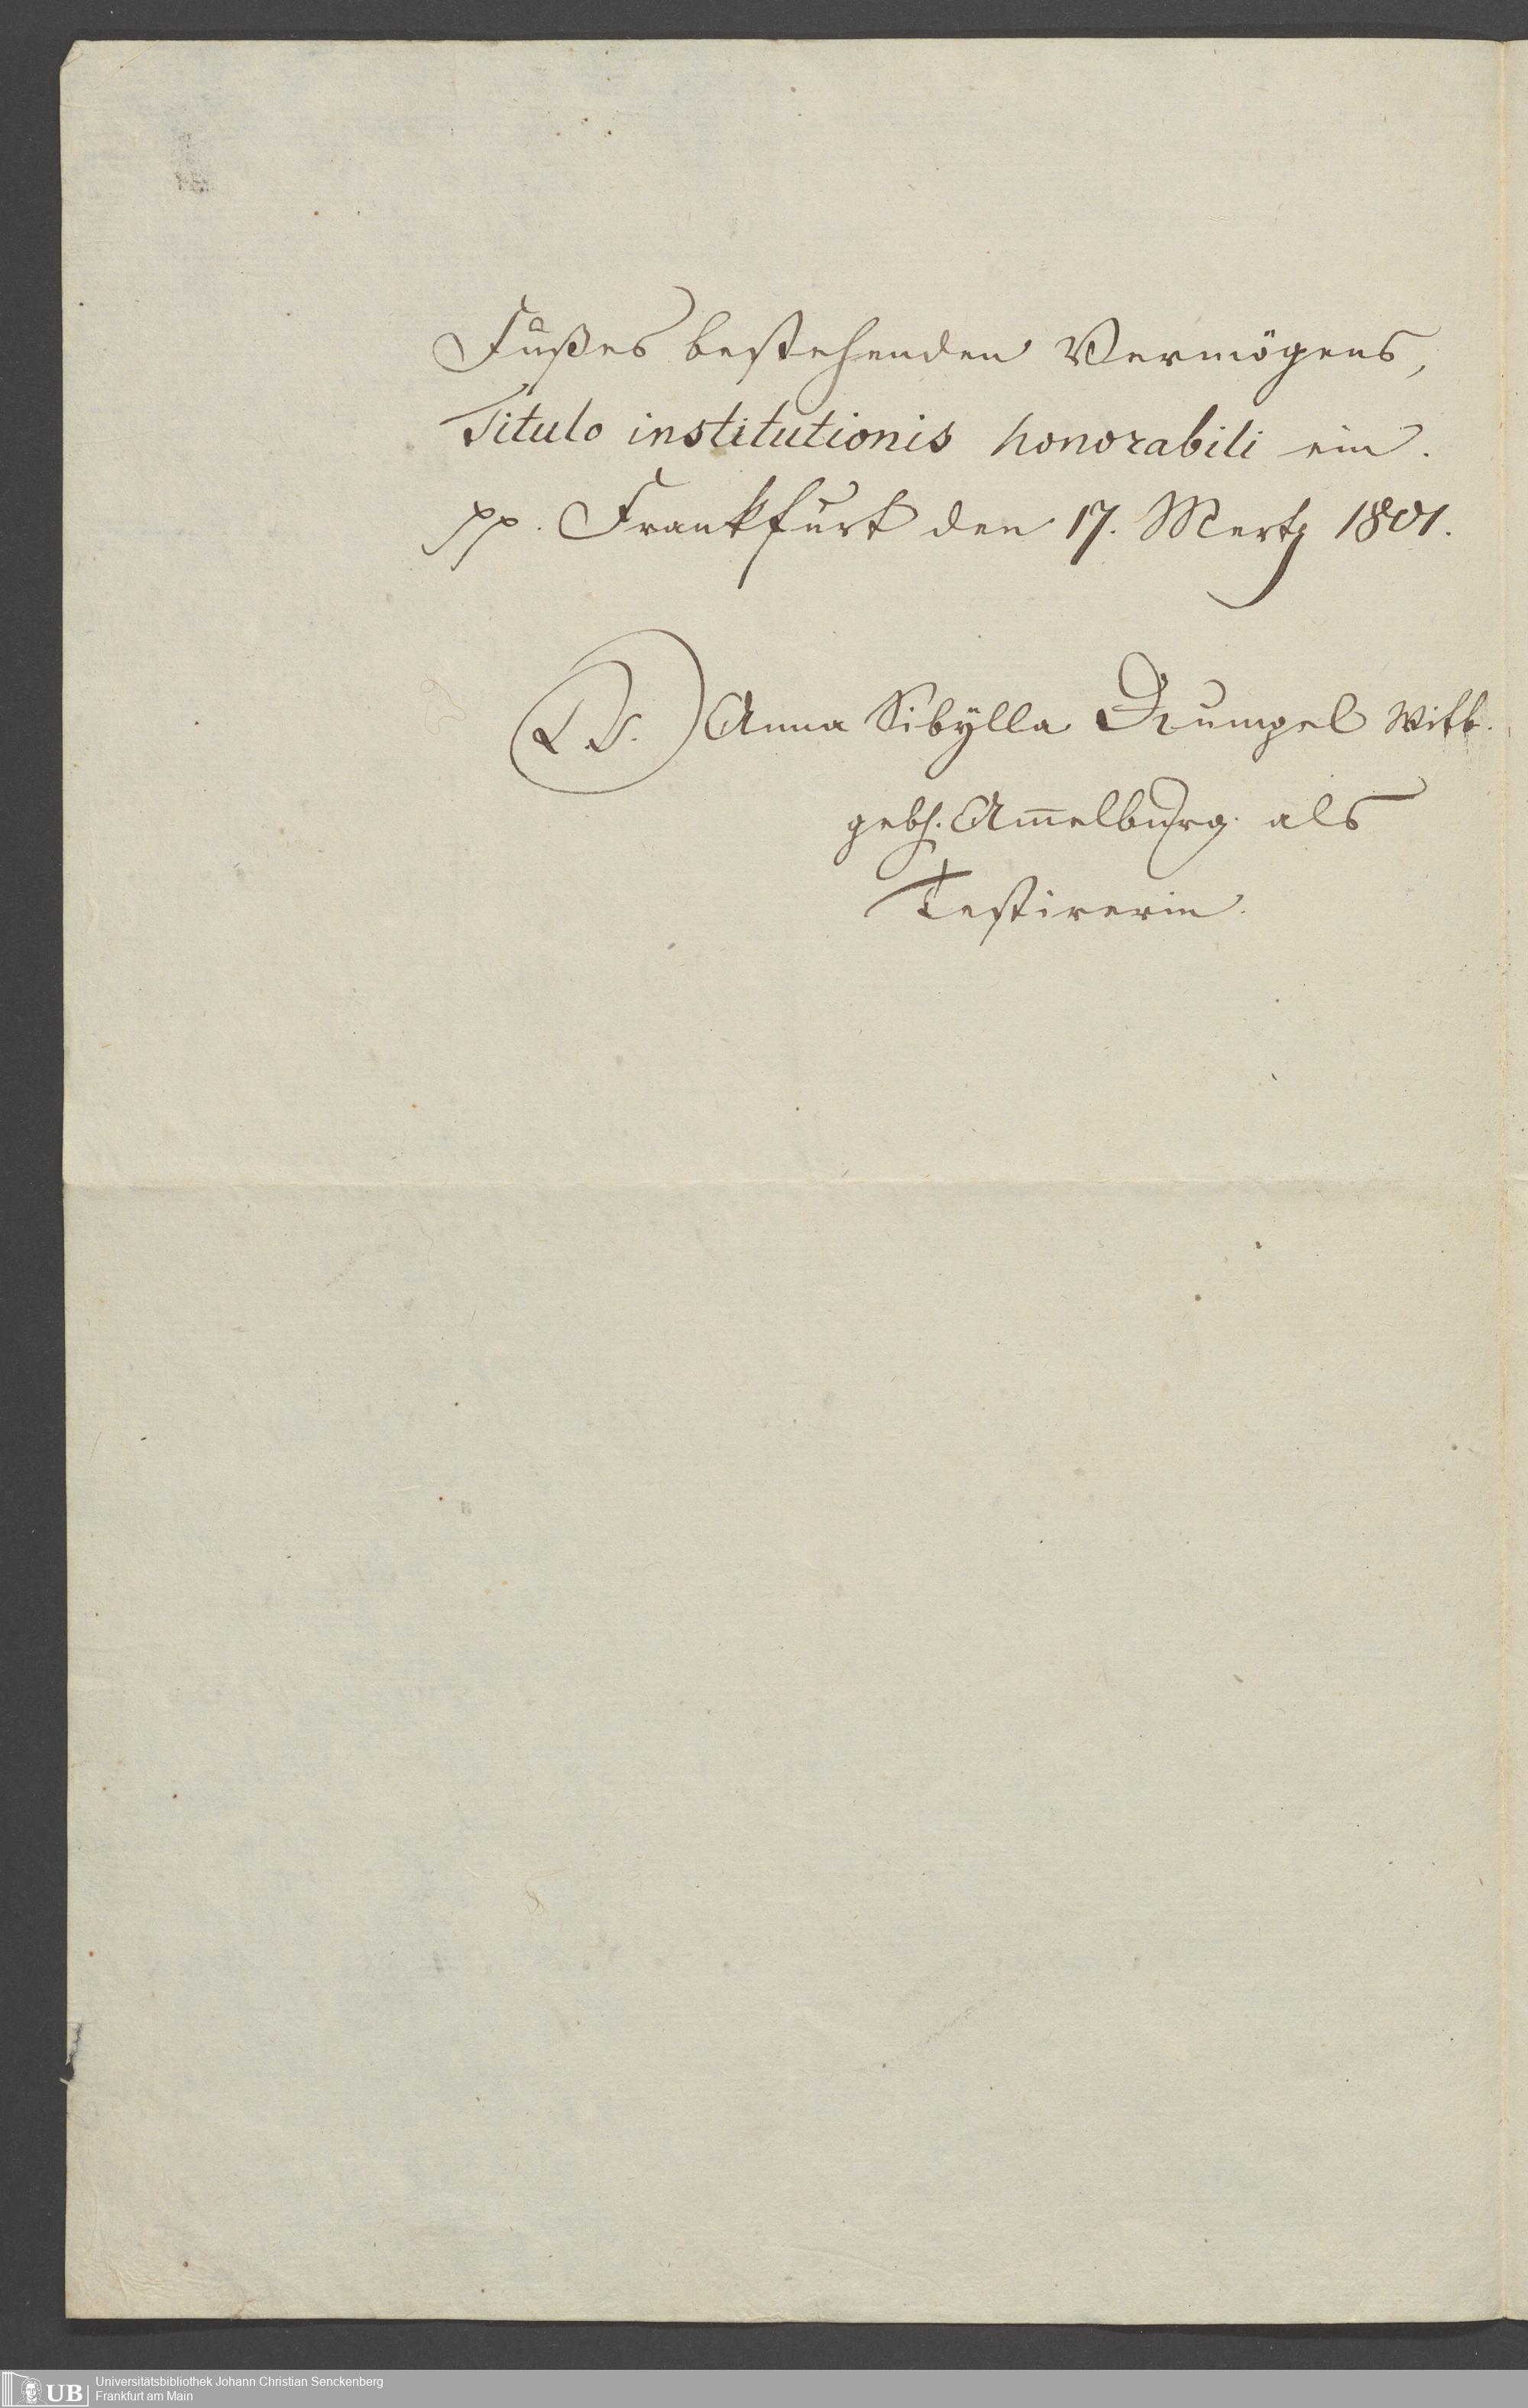 Fußes bestehenden Vermögens,
Titulo institutionis honorabili ein.
pp. Frankfurt den 17. Mertz 1801.
(L.S.) Anna Sibÿlla Rumpel Witb.
gebh. Am̅elburg. als
Testirerin.
UB Universitätsbibliothek Johann Christian Senckenberg
Frankfurt am Main